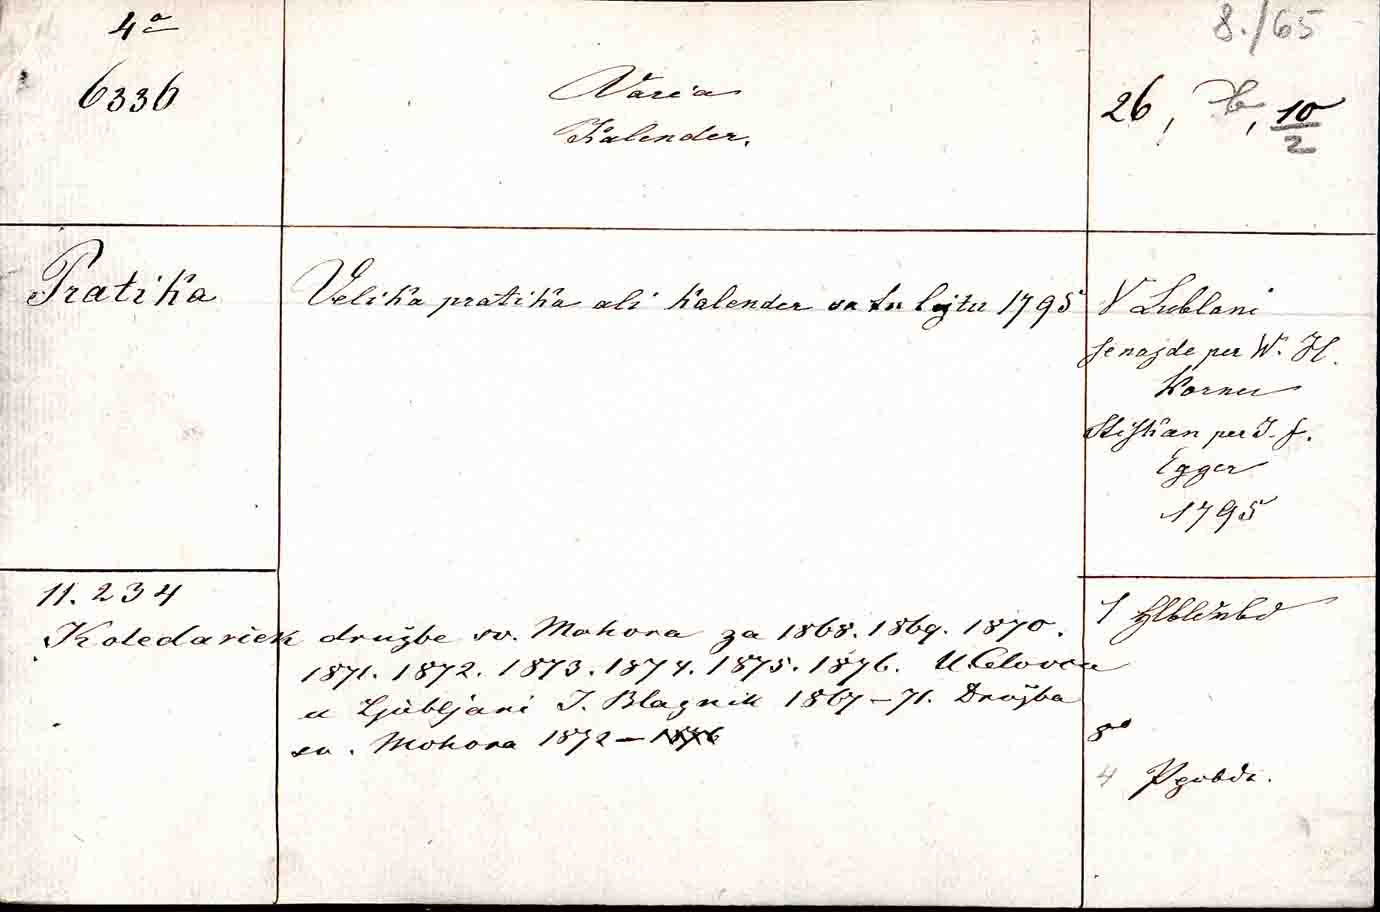 4a
6336
Varia
Kalender.
8./65
26, , 10
2
Pratika
Velika pratika ali kalender sa tu lejtu 1795
V Lublani
se najde per W. H.
Korner
Stiskan per I. f.
Egger
1795
11.234
Koledariček družbe sv. Mohora za 1868. 1869. 1870.
1871. 1872. 1873. 1874. 1875. 1876. U Celovcu
u Ljubljani J. Blaznik 1867-71. Družba
sv. Mohora 1872-1876
1
8°
4